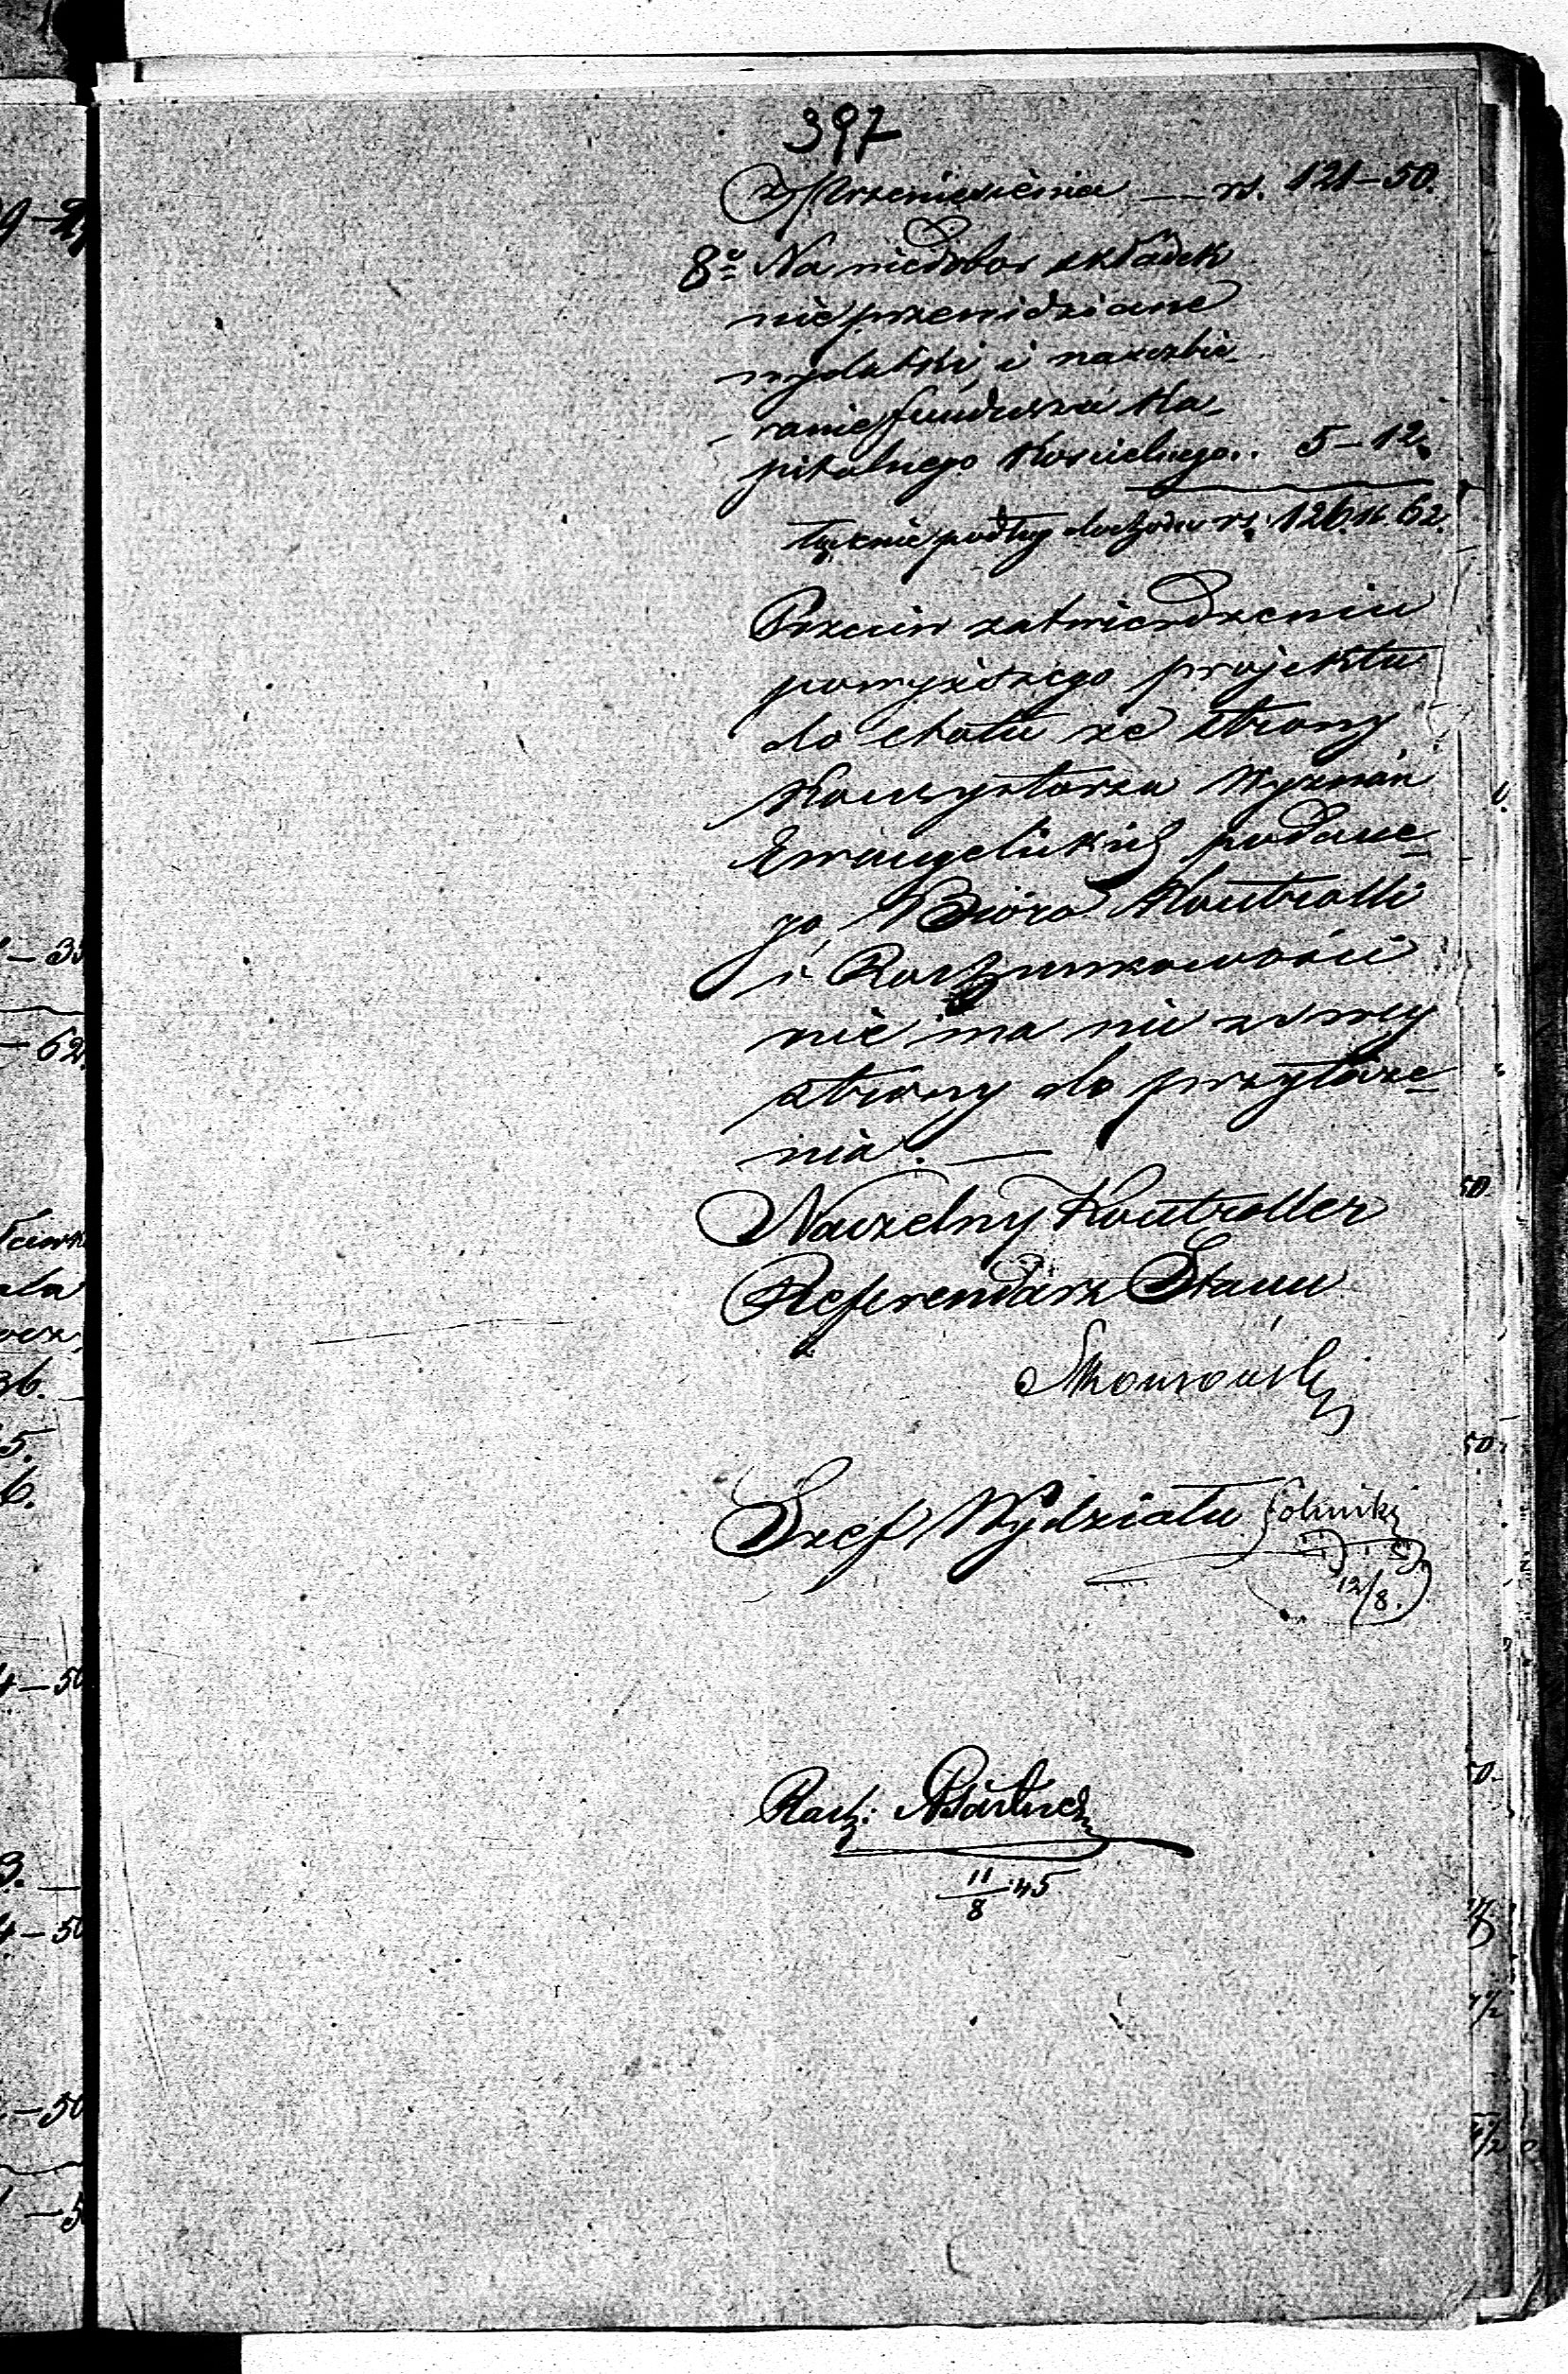 397
z Przeniesienia — rs. 121–50.
8º Na niedobor składek
nieprzewidziane
wydatki i nazczbie-
ranie funduszu Ka-
pitalnego Koscielnego.. 5–12.
Łącznie podług dochodu rs. 126 k. 62.
Przeciw zatwierdzeniu
powyższego projektu
do etatu ze strony
Konsystorza Wyznań
Ewangelickich podane-
go, Bióro Kontrolli
i Rachunkowości
nie ma nic z swey
strony do przytocze-
nia. —
Naczelny Kontroller
Referendarz Stanu
Szef Wydziału
12/8.
Rach:
11/8 45